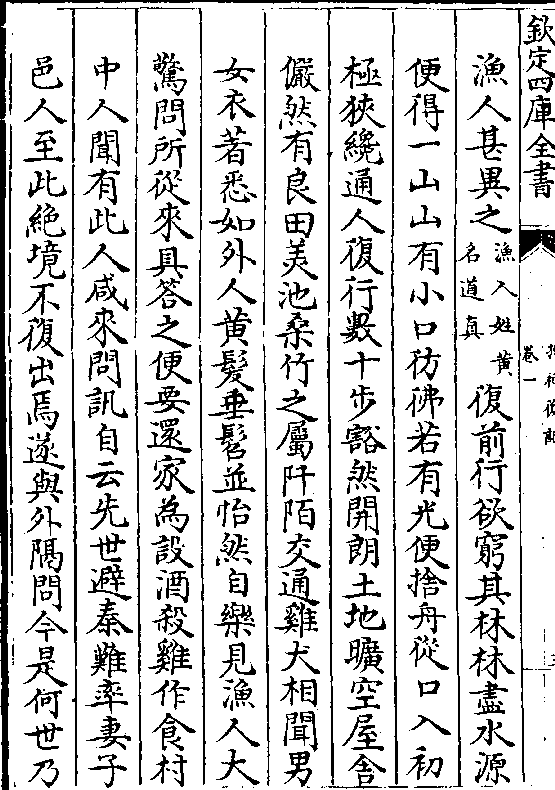 欽定四庫全書
卷一
漁人甚異之漁人姓黄名道真復前行欲窮其林林盡水源
便得一山山有小口彷彿若有光便捨舟從口入初
極狹纔通人復行數十步豁然開朗土地曠空屋舍
儼然有良田美池桑竹之屬阡陌交通雞犬相聞男
女衣著悉如外人黄髮垂髫並怡然自樂見漁人大
驚問所從來具答之便要還家為設酒殺雞作食村
中人聞有此人咸來問訊自云先世避秦難率妻子
邑人至此絶境不復出焉遂與外隔問今是何世乃